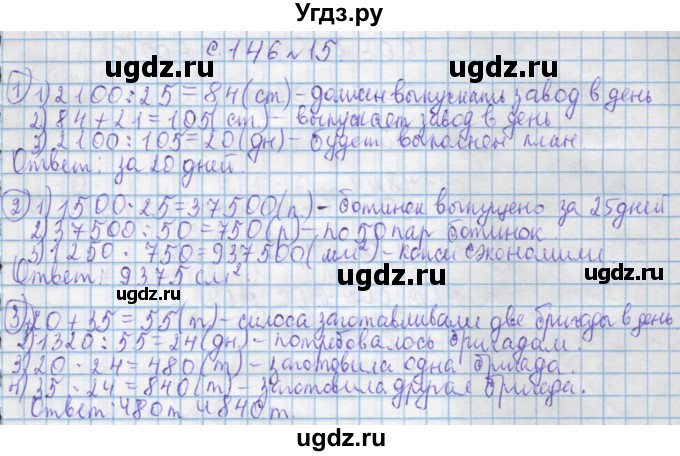 Угдз.ру
с. 146 №15.
1) 1) 2100 : 25 = 84 (ст) – должен выпускать завод в день
2) 84 + 21 = 105 (ст) – выпускает завод в день
3) 2100 : 105 = 20 (дн) – будет выполнен план
Ответ: за 20 дней.
2) 1) 1500 · 25 = 37500 (п) – ботинок выпущено за 25 дней
2) 37500 : 50 = 750 (р) – по 50 пар ботинок
3) 1250 · 750 = 937500 (мм²) – кожи сэкономили
Ответ: 9375 см².
3) 1) 20 + 35 = 55 (т) – силоса заготавливали две бригады в день
2) 1320 : 55 = 24 (дн) – потребовалось бригадам.
3) 20 · 24 = 480 (т) – заготовила одна бригада.
4) 35 · 24 = 840 (т) – заготовила другая бригада.
Ответ: 480 т и 840 т.
ugdz.ru
ugdz.ru
ugdz.ru
ugdz.ru
ugdz.ru
ugdz.ru
ugdz.ru
ugdz.ru
ugdz.ru